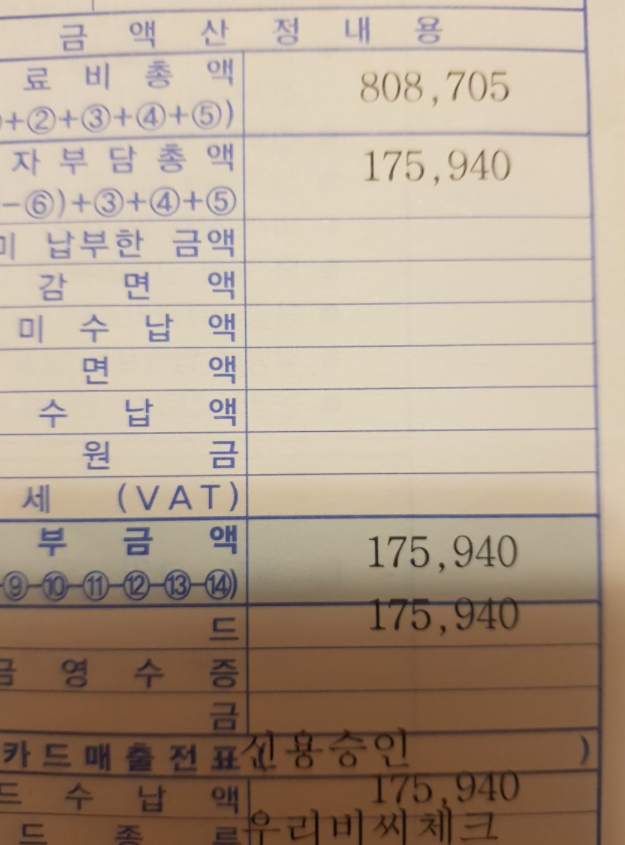 금 액 산 정 내 용
료 비 총 액 808,705
+②+③+④+⑤)
자 부 담 총 액 175,940
-⑥)+③+④+⑤
미 납부한 금액
감 면 액
미 수 납 액
면 액
수 납 액
원 금
세 (VAT)
부 금 액 175,940
⑨-⑩-⑪-⑫-⑬-⑭)
드 175,940
금 영 수 증
금
카드매출전표( 신용승인 )
드 수 납 액 175,940
드 종 류 우리비씨체크